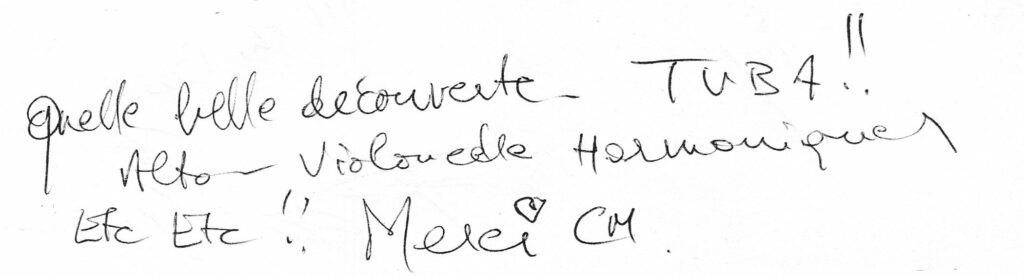 Quelle belle découverte - TUBA !!
Alto - Violoncelle Harmoniques
Etc Etc !! Merci CM.